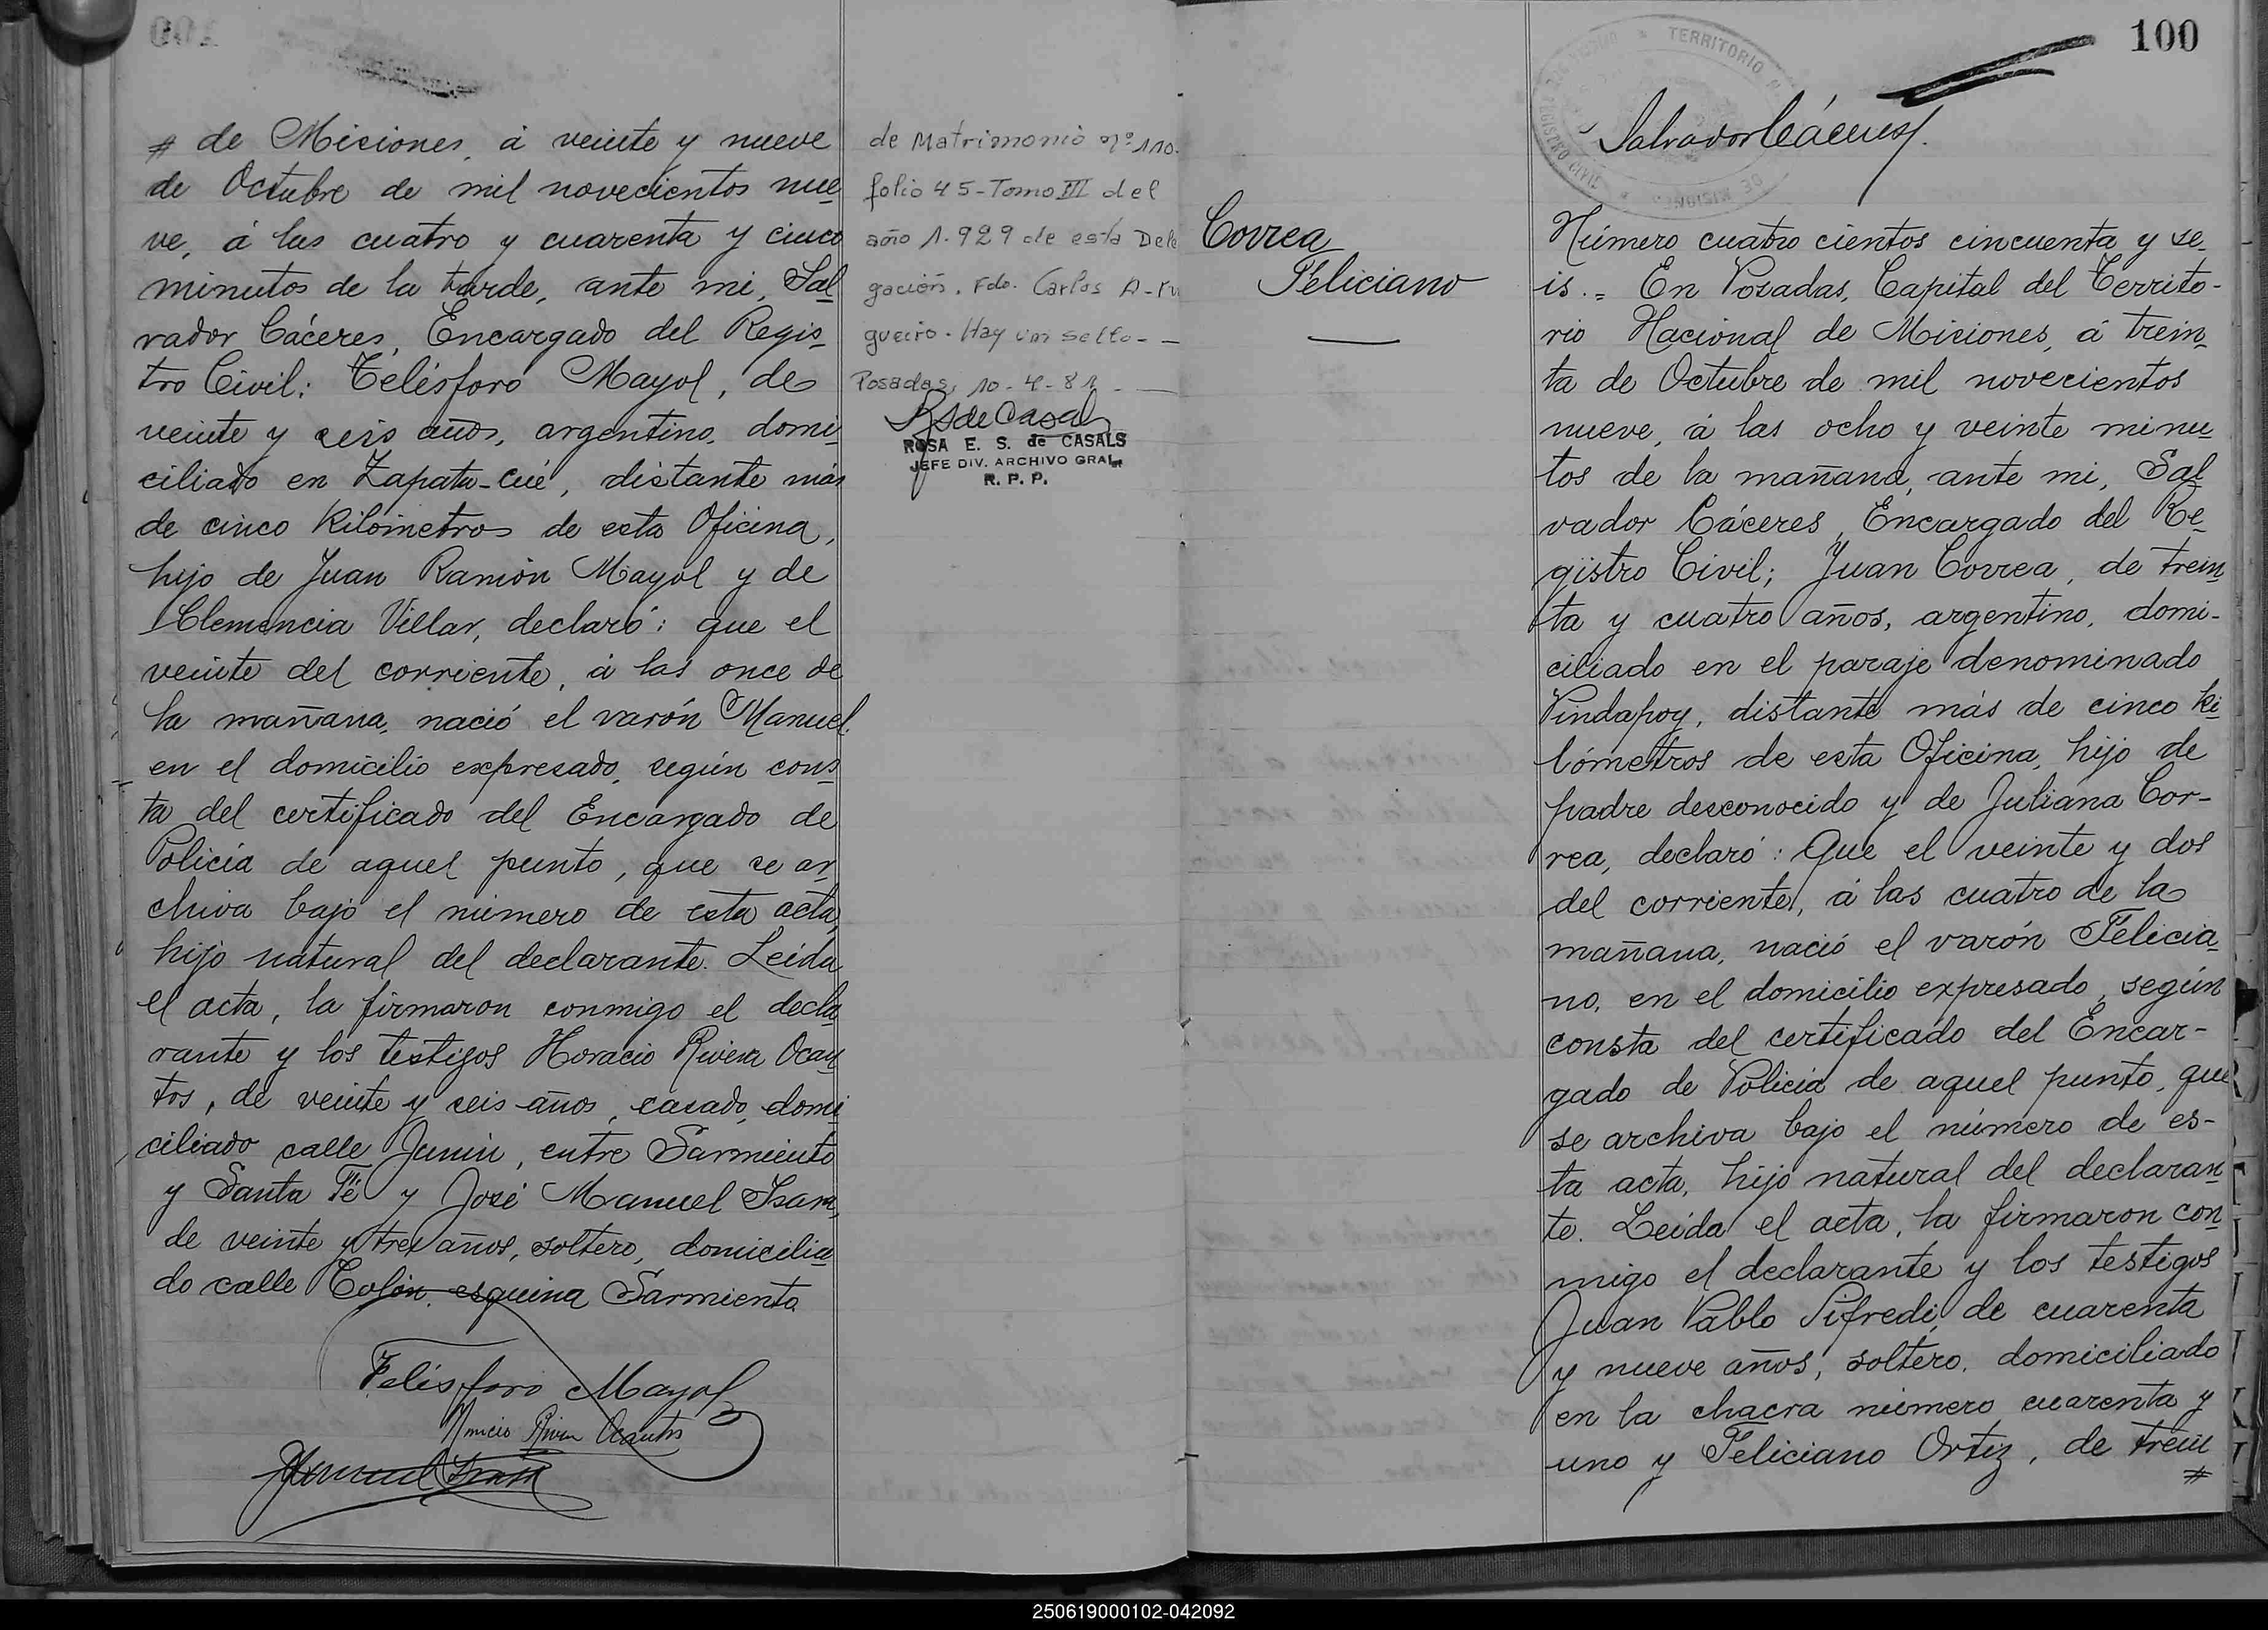 # de Misiones, á veinte y nueve
de Octubre de mil novecientos nue
ve, á las cuatro y cuarenta y cinco
minutos de la tarde, ante mi, Sal
vador Cáceres, Encargado del Regis
tro Civil: Telésforo Mayol, de
veinte y seis años, argentino, domi
ciliado en Zapata-cué, distante más
de cinco kilómetros de esta Oficina,
hijo de Juan Ramón Mayol y de
Clemencia Villar, declaró: que el
veinte del corriente, á las once de
la mañana, nació el varón Manuel
en el domicilio expresado, según cons
ta del certificado del Encargado de
Policía de aquel punto, que se ar
chiva bajo el número de esta acta,
hijo natural del declarante. Leída
el acta, la firmaron conmigo el decla
rante y los testigos Horacio Rivera Ocan
tos, de veinte y seis años, casado, domi
ciliado calle Junín, entre Sarmiento
y Santa Fé y José Manuel
de veinte y tres años, soltero, domicilia
do calle Colón, esquina Sarmiento
Telésforo Mayol
de Matrimonio nº 110.
folio 45-Tomo III del
año 1.929 de esta Dele
gación. Fdo. Carlos A.
gueiro. Hay un sello.-
Posadas, 10-4-81
RSdeCasals
ROSA E. S. de CASALS
JEFE DIV. ARCHIVO GRAL.
R. P. P.
100
TERRITORIO
REGISTRO CIVIL
DE MISIONES
Salvador Cáceres
Correa
Feliciano
Número cuatro cientos cincuenta y se
is.= En Posadas, Capital del Territo-
rio Nacional de Misiones, á trein
ta de Octubre de mil novecientos
nueve, á las ocho y veinte minu
tos de la mañana, ante mi, Sal
vador Cáceres, Encargado del Re
gistro Civil; Juan Correa, de trein
ta y cuatro años, argentino, domi-
ciliado en el paraje denominado
Pindapoy, distante más de cinco ki
lómetros de esta Oficina, hijo de
padre desconocido y de Juliana Cor-
rea, declaró: Que el veinte y dos
del corriente, á las cuatro de la
mañana, nació el varón Felicia
no, en el domicilio expresado, según
consta del certificado del Encar-
gado de Policía de aquel punto, que
se archiva bajo el número de es-
ta acta, hijo natural del declaran
te. Leída el acta, la firmaron con
migo el declarante y los testigos
Juan Pablo Sifredi, de cuarenta
y nueve años, soltero, domiciliado
en la chacra número cuarenta y
uno y Feliciano Ortiz, de trein
#
250619000102-042092